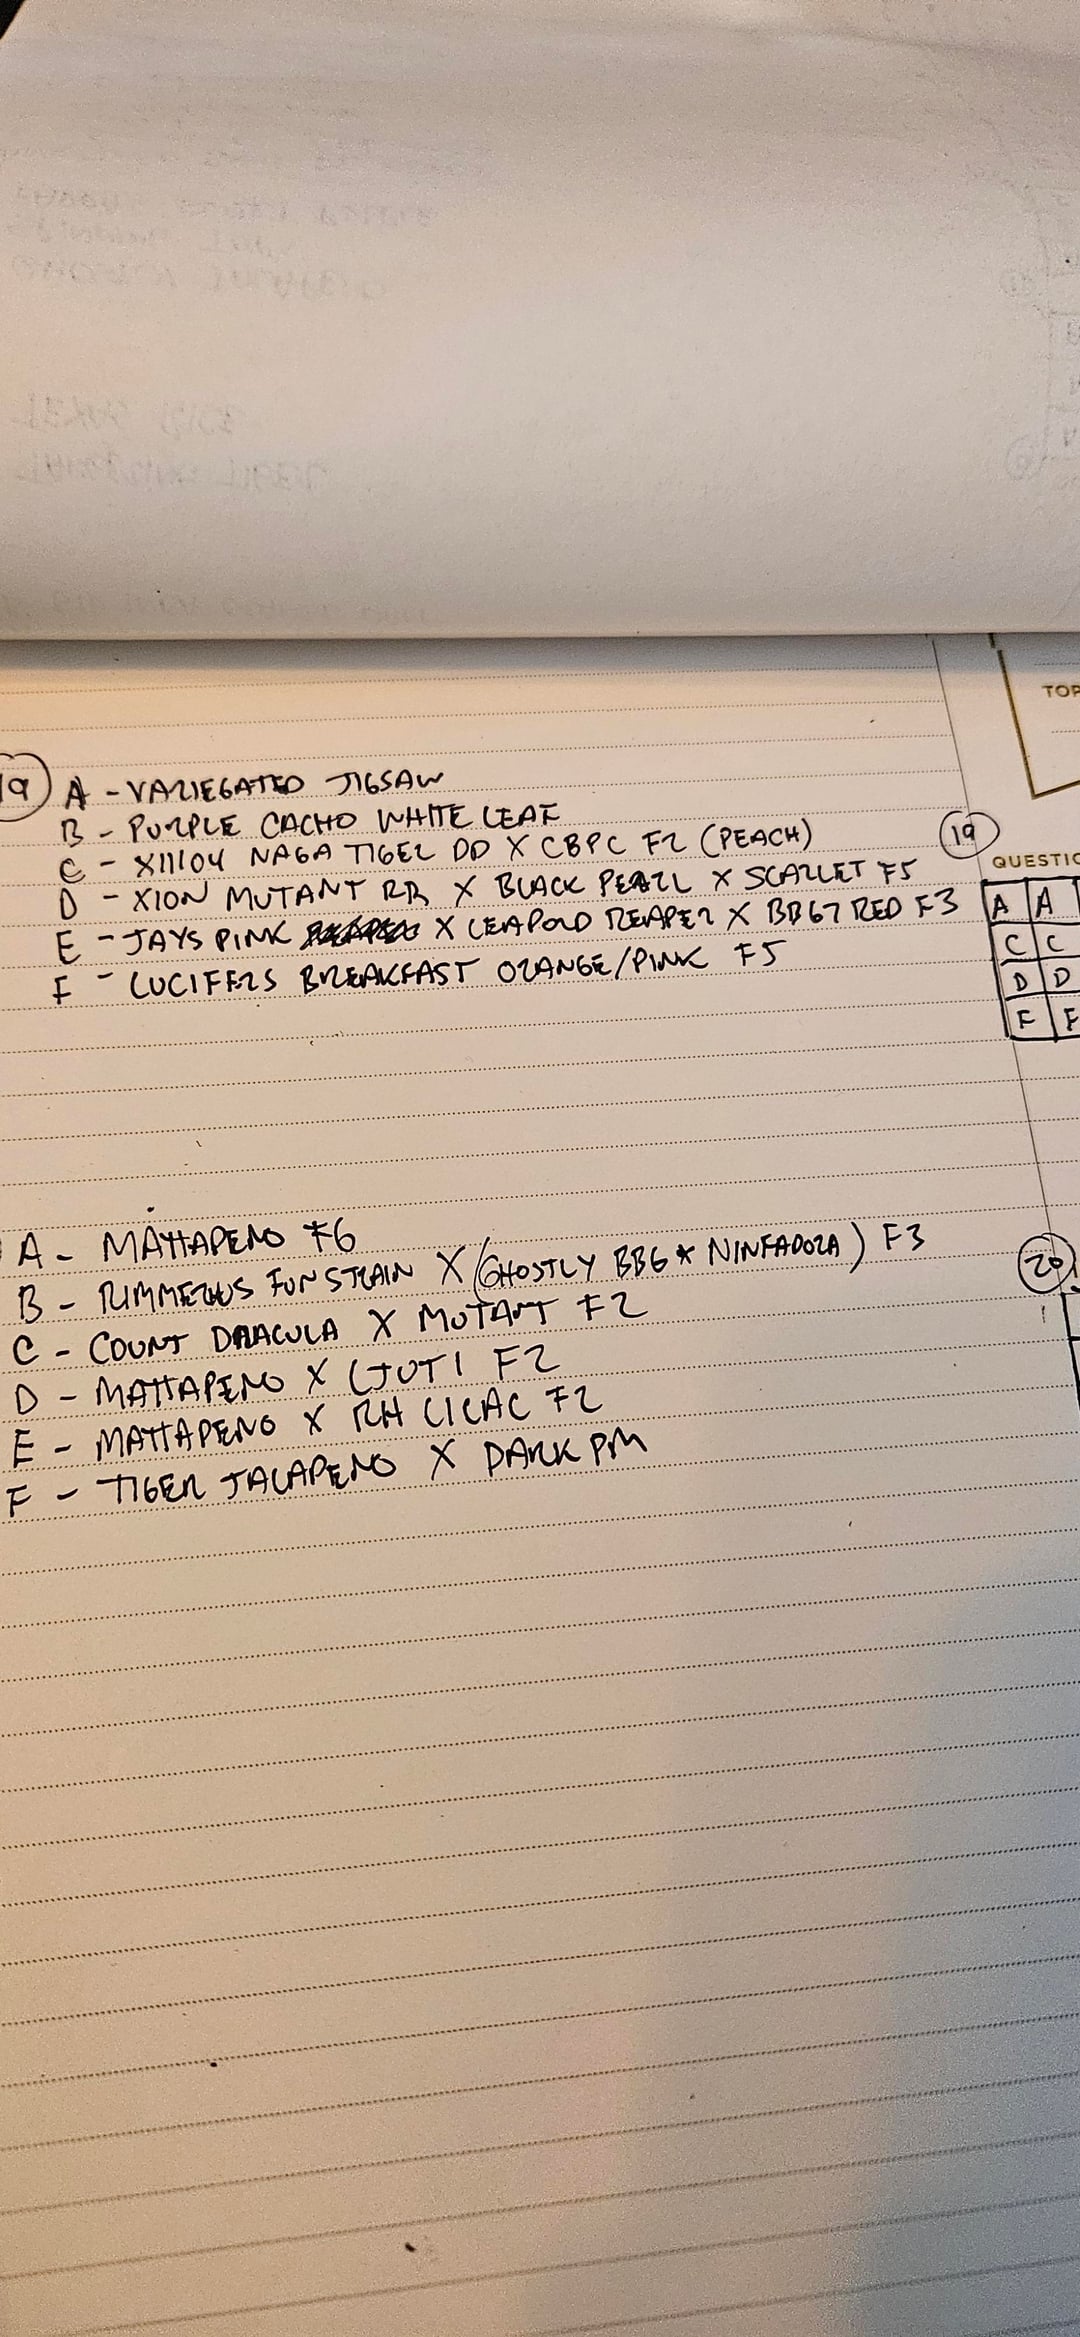 19 A - VARIEGATED JIGSAW
B - PURPLE CACHO WHITE LEAF
C - X11104 NAGA TIGER DD X CBPC F2 (PEACH)
D - XION MUTANT RR X BLACK PEARL X SCARLET F5
E - JAYS PINK X LEAPOLD REAPER X BB67 RED F3
F - LUCIFERS BREAKFAST ORANGE/PINK F5
A - MATTAPENO F6
B - RIMMERUS FUN STRAIN X (GHOSTLY BBG * NINFADORA) F3
C - COUNT DRACULA X MUTANT F2
D - MATTAPENO X LJUTI F2
E - MATTAPENO X RH LILAC F2
F - TIGER JALAPENO X DARK PM
TOP
19
QUESTIO
A A
C C
D D
F F
20